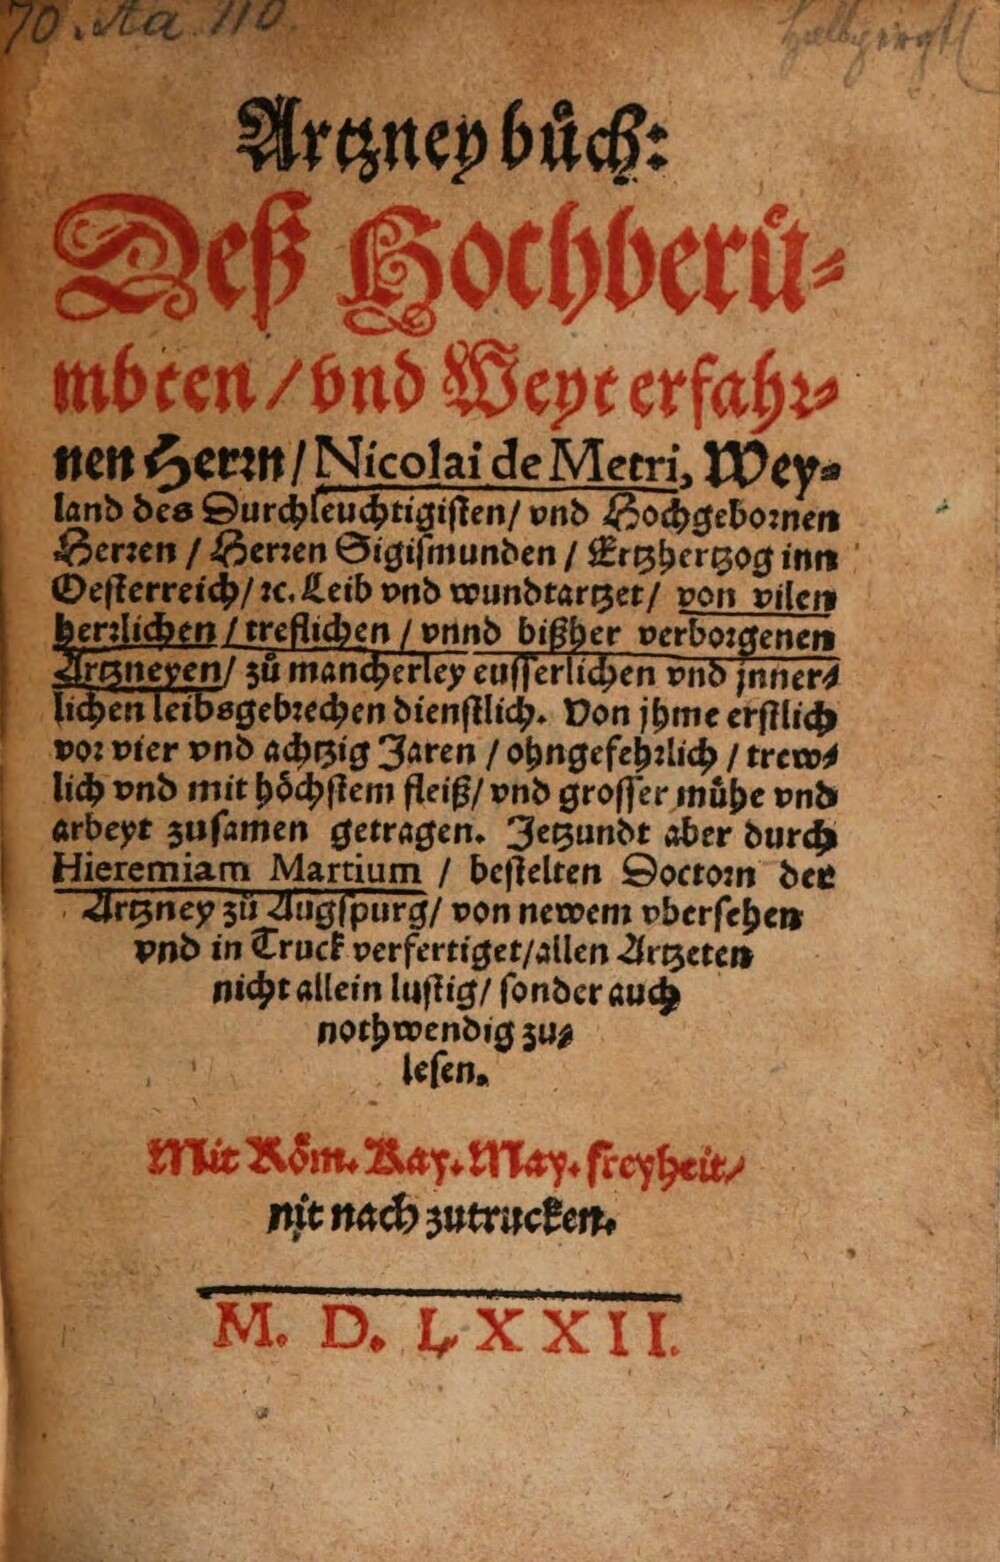 70. Aa 110.
Artzney bůch:
Deß Hochberů-
mbten / vnd Weyt erfahr-
nen Herrn / Nicolai de Metri, Wey-
land des Durchleuchtigisten / vnd Hochgebornen
Herren / Herren Sigismunden / Ertzhertzog inn
Oesterreich / ꝛc. Leib vnd wundtartzet / von vilen
herrlichen / treflichen / vnnd bißher verborgenen
Artzneyen / zů mancherley eusserlichen vnd jnner-
lichen leibsgebrechen dienstlich. Von jhme erstlich
vor vier vnd achtzig Jaren / ohngefehrlich / trew-
lich vnd mit höchstem fleiß / vnd grosser mühe vnd
arbeyt zusamen getragen. Jetzundt aber durch
Hieremiam Martium / bestelten Doctorn der
Artzney zů Augspurg / von newem vbersehen
vnd in Truck verfertiget / allen Artzeten
nicht allein lustig / sonder auch
nothwendig zu-
lesen.
Mit Röm. Kay. May. freyheit /
nit nach zutrucken.
M. D. LXXII.